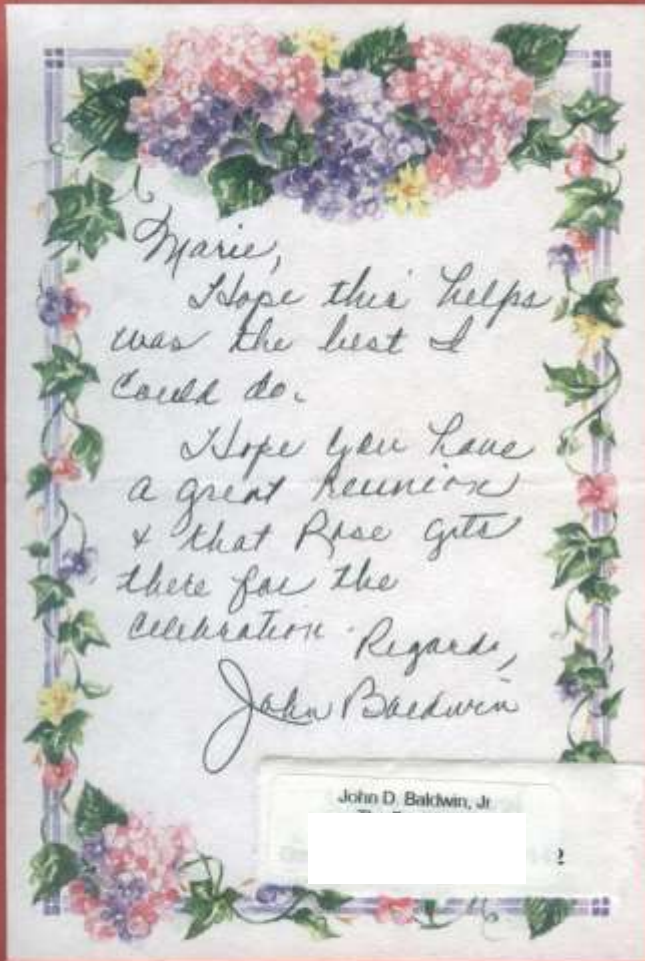 Marie,
Hope this helps
was the best I
could do.
Hope you have
a great reunion
& that Rose gets
there for the
celebration.
Regards,
John Baldwin
John D. Baldwin, Jr